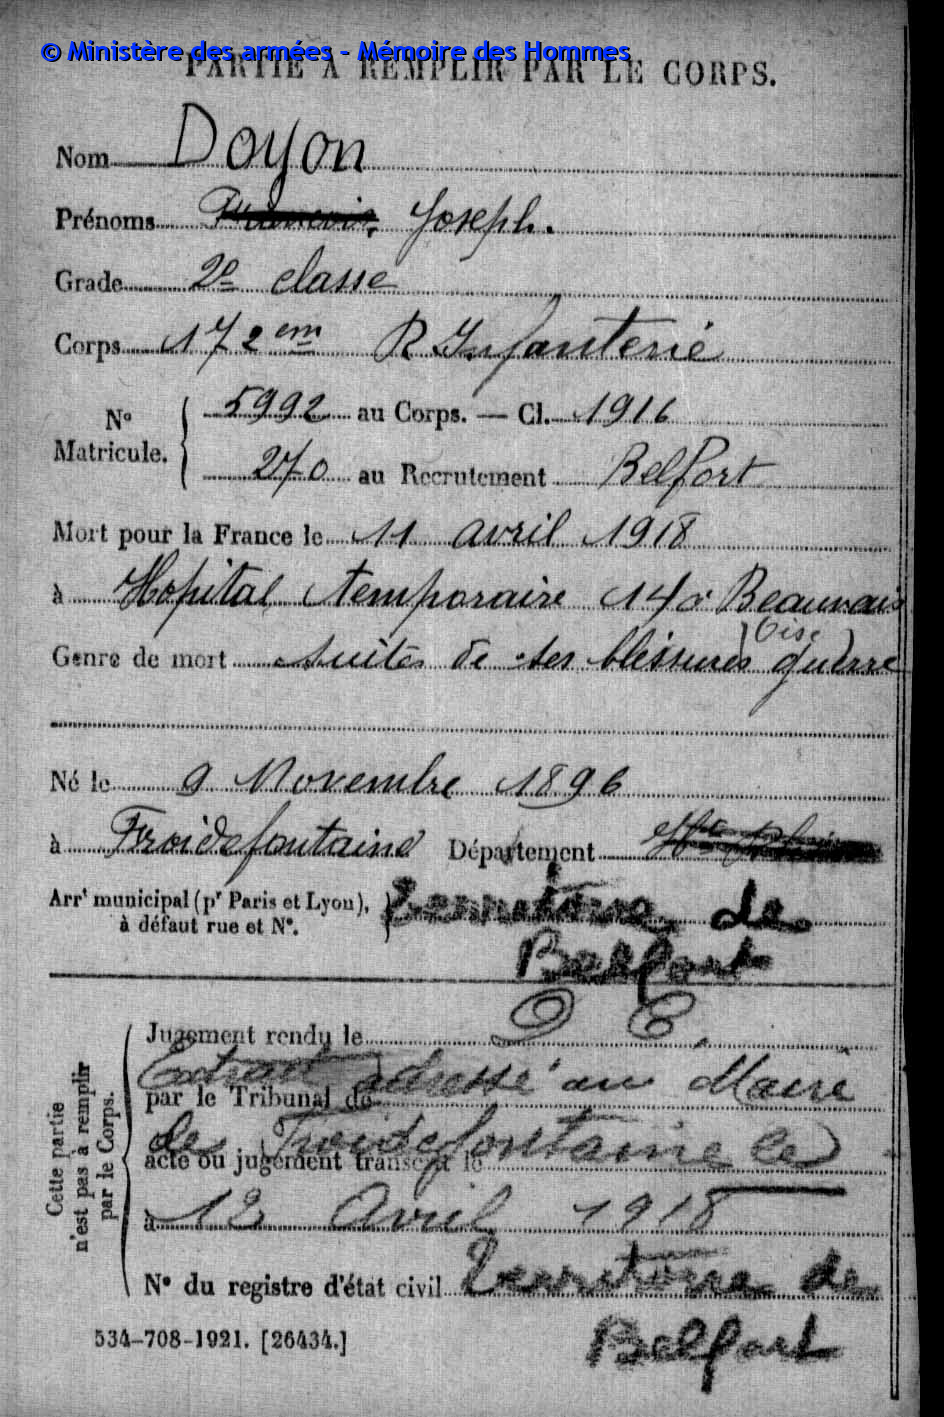 © Ministère des armées - Mémoire des Hommes
PARTIE À REMPLIR PAR LE CORPS.
Nom Doyon
Prénoms François, Joseph.
Grade 2e classe
Corps 172 em R Infanterie
N° Matricule. 5992 au Corps. — Cl. 1916
270 au Recrutement Belfort
Mort pour la France le 11 avril 1918
à Hopital temporaire 14 à Beauvais
(Oise)
Genre de mort suites de ses blessures guerre
Né le 9 Novembre 1896
à Froidefontaine Département Hte
Arrt municipal (pr Paris et Lyon), à défaut rue et N°. Territoire de
Belfort
Cette partie n'est pas à remplir par le Corps.
Jugement rendu le D C.
Extrait adressé au Maire
par le Tribunal de
de Froidefontaine le
acte ou jugement transcrit le
à 12 Avril 1918
N° du registre d'état civil Territoire de
Belfort
534-708-1921. [26434.]